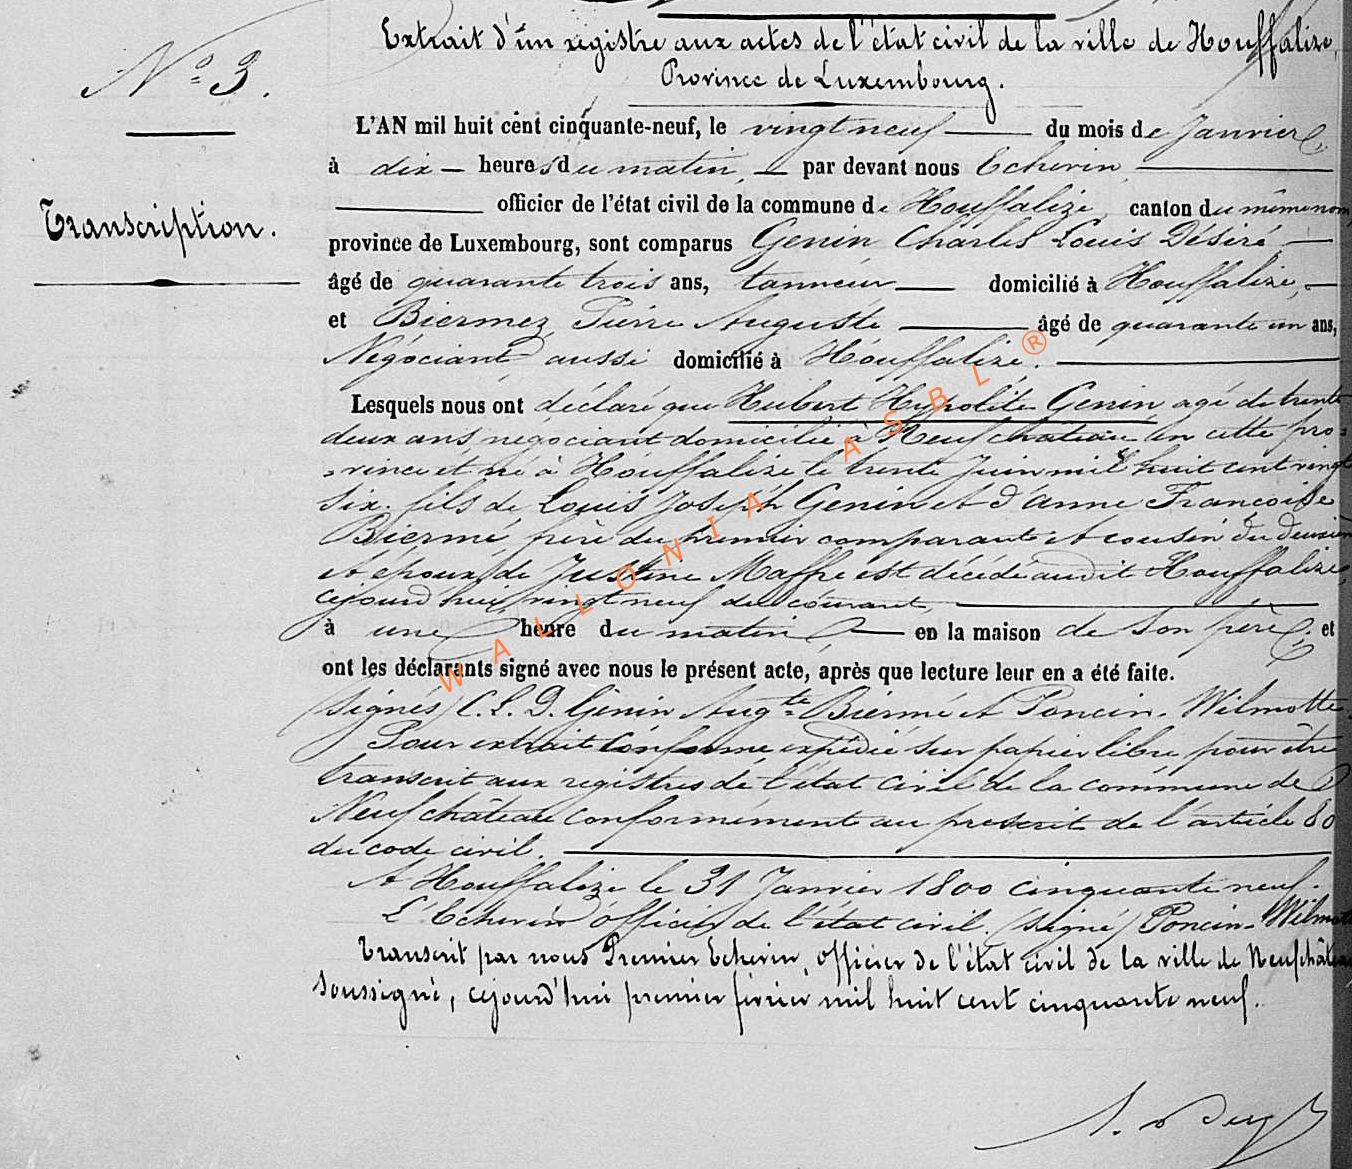 Extrait d'un registre aux actes de l'état civil de la ville de Houffalize,
Province de Luxembourg.
Nº 3.
Transcription.
L'AN mil huit cent cinquante-neuf, le vingt neuf du mois de Janvier
à dix heures du matin, par devant nous Echevin
officier de l'état civil de la commune de Houffalize, canton du même nom
province de Luxembourg, sont comparus Genin Charles Louis Désiré
âgé de quarante trois ans, tanneur domicilié à Houffalize,
et Biermez Pierre Auguste âgé de quarante un ans,
Négociant aussi domicilié à Houffalize.
Lesquels nous ont déclaré que Hubert Hypolite Genin agé de trente
deux ans négociant domicilié à Neufchateau en cette pro=
=vince et né à Houffalize le trente Juin mil huit cent vingt
six. fils de Louis Joseph Genin et d'anne Francoise
Biermé frère du premier comparant et cousin du deuxième
et époux de Justine Maffe est décédé audit Houffalize,
cejourd'hui, vingt neuf du courant,
à une heure du matin en la maison de son père et
ont les déclarants signé avec nous le présent acte, après que lecture leur en a été faite.
(signés) C. L. D. Genin Aug.te Biermé et Poncin-Wilmotte
Pour extrait conforme expédié sur papier libre, pour être
transcrit aux registres de l'état civil de la commune de
Neufchâteau conformément au prescrit de l'article 80
du code civil.
A Houffalize le 31 Janvier 1800 cinquante neuf.
L'Echevin officier de l'état civil. (signé) Poncin-Wilmotte
Transcrit par nous Premier Echevin, officier de l'état civil de la ville de Neufchâteau
soussigné, cejourd'hui premier février mil huit cent cinquante neuf.
WALLONIA ASBL ®